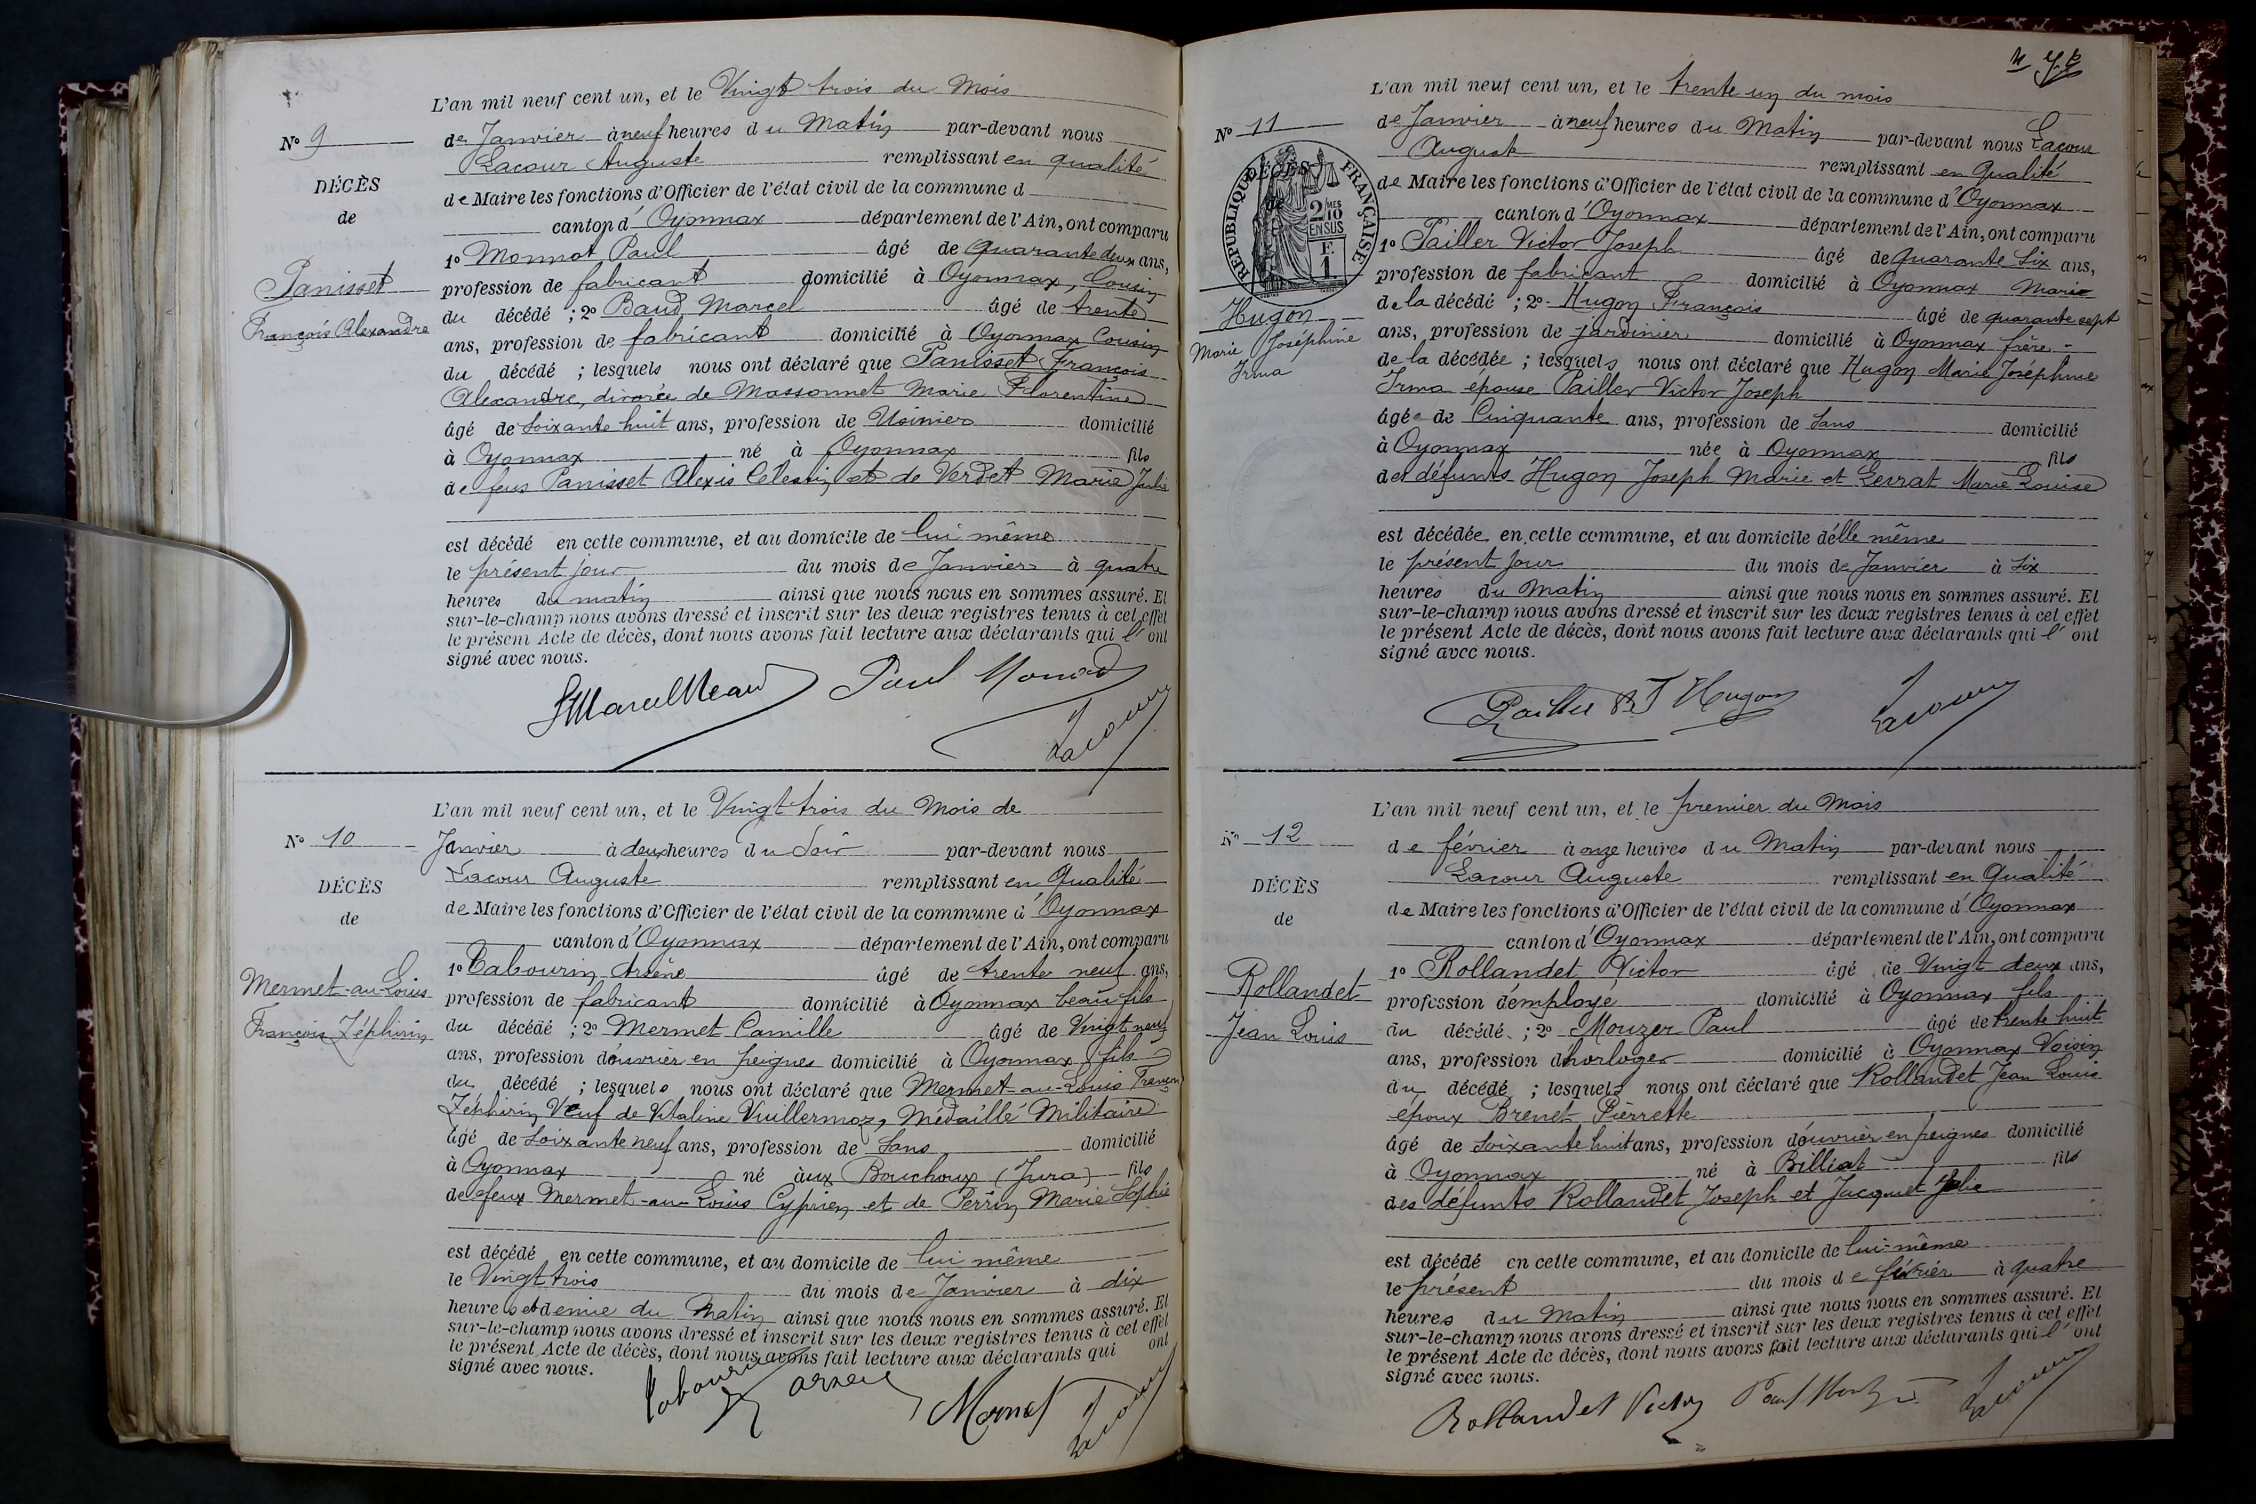 L'an mil neuf cent un, et le Vingt trois du Mois
N° 9
de Janvier à neuf heures du Matin par-devant nous
Lacour Auguste remplissant en qualité
DÉCÈS
de Maire les fonctions d'Officier de l'état civil de la commune d
de
canton d'Oyonnax département de l'Ain, ont comparu
1° Monnot Paul âgé de Quarante deux ans,
Panisset
profession de fabricant domicilié à Oyonnax, Cousin
François Alexandre
du décédé ; 2° Baud Marcel âgé de trente
ans, profession de fabricant domicilié à Oyonnax Cousin
du décédé ; lesquels nous ont déclaré que Panisset François
Alexandre, divorcé de Massonnet Marie Florentine
âgé de Soixante huit ans, profession de Usinier domicilié
à Oyonnax né à Oyonnax fils
de feus Panisset Alexis Célestin et de Verdet Marie Julie
est décédé en cette commune, et au domicile de lui même
le présent jour du mois de Janvier à quatre
heures du matin ainsi que nous nous en sommes assuré. Et
sur-le-champ nous avons dressé et inscrit sur les deux registres tenus à cet effet
le présent Acte de décès, dont nous avons fait lecture aux déclarants qui l'ont
signé avec nous.
Paul Lacour
L'an mil neuf cent un, et le Vingt trois du Mois de
N° 10
Janvier à deux heures du Soir par-devant nous
Lacour Auguste remplissant en Qualité
DÉCÈS
de Maire les fonctions d'Officier de l'état civil de la commune d'Oyonnax
de
canton d'Oyonnax département de l'Ain, ont comparu
1° Cabourin Arsène âgé de trente neuf ans,
Mermet-au-Louis
profession de fabricant domicilié à Oyonnax beau fils
François Zéphirin
du décédé ; 2° Mermet Camille âgé de Vingt neuf
ans, profession d'ouvrier en peignes domicilié à Oyonnax fils
du décédé ; lesquels nous ont déclaré que Mermet-au-Louis François
Zéphirin Veuf de Vitaline Vuillermoz, Médaillé Militaire
âgé de Soixante neuf ans, profession de Sans domicilié
à Oyonnax né aux Bouchoux (Jura) fils
de feux Mermet-au-Louis Cyprien et de Perrin Marie Sophie
est décédé en cette commune, et au domicile de lui même
le Vingt trois du mois de Janvier à dix
heures et demie du Matin ainsi que nous nous en sommes assuré. Et
sur-le-champ nous avons dressé et inscrit sur les deux registres tenus à cet effet
le présent Acte de décès, dont nous avons fait lecture aux déclarants qui ont
signé avec nous.
Cabourin Arsène Mermet Lacour
L'an mil neuf cent un, et le trente un du mois
N° 11
de Janvier à neuf heures du Matin par-devant nous Lacour
Auguste remplissant en Qualité
DÉCÈS
de
RÉPUBLIQUE FRANÇAISE
2/10MES EN SUS
F. 1
de Maire les fonctions d'Officier de l'état civil de la commune d'Oyonnax
canton d'Oyonnax département de l'Ain, ont comparu
1° Pailler Victor Joseph âgé de Quarante Six ans,
profession de fabricant domicilié à Oyonnax Marie
Hugon
Marie Joséphine
Irma
de la décédé ; 2° Hugon François âgé de quarante sept
ans, profession de jardinier domicilié à Oyonnax frère
de la décédée ; lesquels nous ont déclaré que Hugon Marie Joséphine
Irma épouse Pailler Victor Joseph
âgée de Cinquante ans, profession de Sans domicilié
à Oyonnax née à Oyonnax fils
des défunts Hugon Joseph Marie et Levrat Marie Louise
est décédée en cette commune, et au domicile d'elle même
le présent Jour du mois de Janvier à Six
heures du Matin ainsi que nous nous en sommes assuré. Et
sur-le-champ nous avons dressé et inscrit sur les deux registres tenus à cet effet
le présent Acte de décès, dont nous avons fait lecture aux déclarants qui l'ont
signé avec nous.
Pailler Hugon Lacour
L'an mil neuf cent un, et le premier du Mois
N° 12
de février à onze heures du Matin par-devant nous
Lacour Auguste remplissant en Qualité
DÉCÈS
de Maire les fonctions d'Officier de l'état civil de la commune d'Oyonnax
de
canton d'Oyonnax département de l'Ain, ont comparu
1° Rollandet Victor âgé de Vingt deux ans,
Rollandet
profession d'employé domicilié à Oyonnax fils
Jean Louis
du décédé ; 2° Mouzer Paul âgé de trente huit
ans, profession d'horloger domicilié à Oyonnax Voisin
du décédé ; lesquels nous ont déclaré que Rollandet Jean Louis
époux Brenet Pierrette
âgé de Soixante huit ans, profession d'ouvrier en peignes domicilié
à Oyonnax né à Billiat fils
des défunts Rollandet Joseph et Jacquet Julie
est décédé en cette commune, et au domicile de lui-même
le présent du mois de février à quatre
heures du Matin ainsi que nous nous en sommes assuré. Et
sur-le-champ nous avons dressé et inscrit sur les deux registres tenus à cet effet
le présent Acte de décès, dont nous avons fait lecture aux déclarants qui l'ont
signé avec nous.
Rollandet Victor Paul Lacour